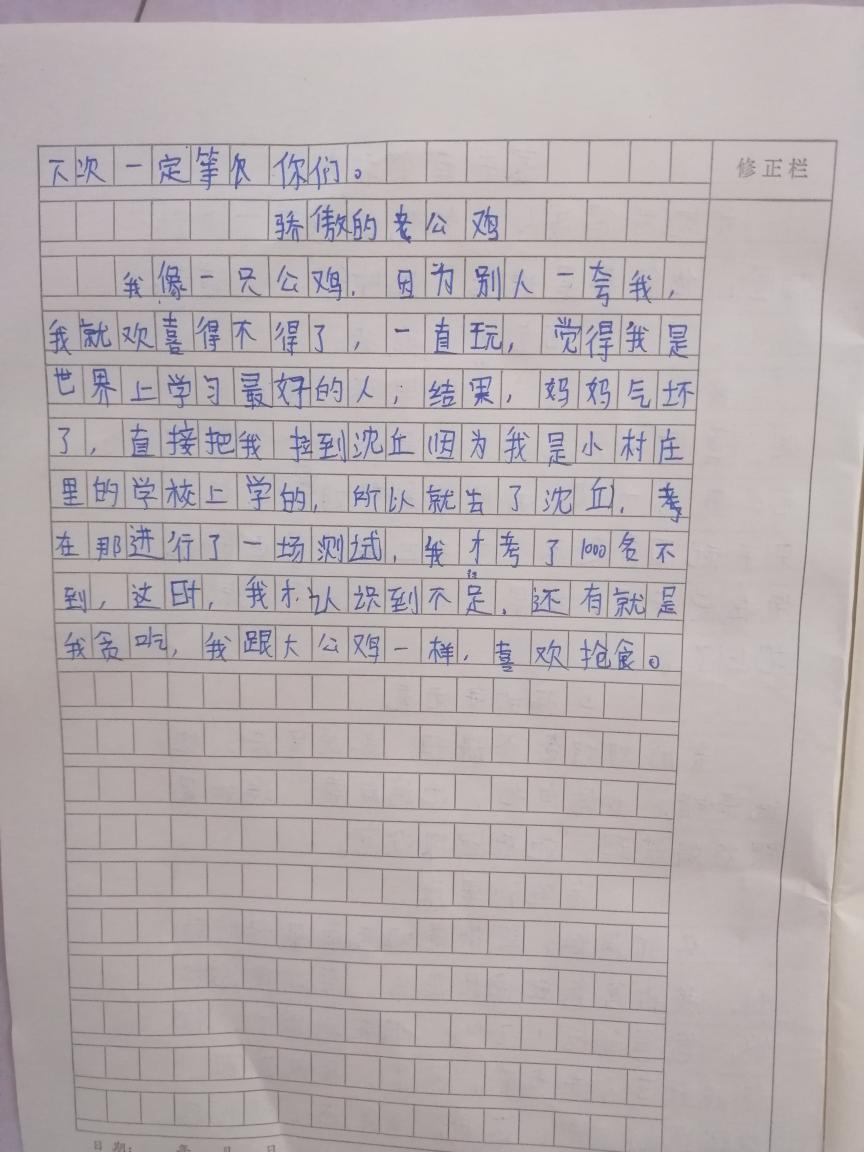 下次一定等 你们。
修正栏
骄傲的老公鸡
我像一只公鸡，因为别人一夸我，
我就欢喜得不得了，一直玩，觉得我是
世界上学习最好的人；结果，妈妈气坏
了，直接把我拉到沈丘因为我是小村庄
里的学校上学的，所以就去了沈丘，考
在那进行了一场测试，我才考了1000名不
到，这时，我才认识到不足，还有就是
我贪吃，我跟大公鸡一样，喜欢抢食。
日期： 年 月 日